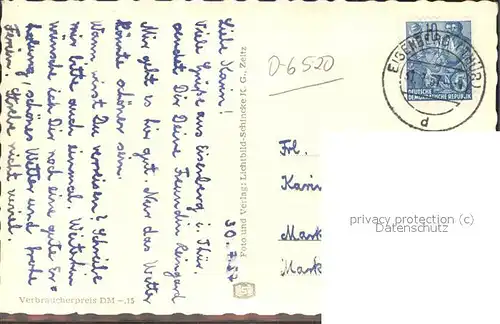 Liebe Karin!
Viele Grüße aus Eisenberg i. Thür.
sendet Dir Deine Freundin Reingard
Mir geht es hier gut. Nur das Wetter
könnte schöner sein.
Wann wirst Du verreisen? Schreibe
mir bitte auch einmal. Weiterhin
wünsche ich Dir noch eine gute Er-
holung, schönes Wetter und frohe
Ferien. Strebe nicht viel!
30.7.57
Foto und Verlag: Lichtbild-Schincke K. G., Zeitz
Verbraucherpreis DM -.15
D-6520
EISENBERG (THÜR)
d
DEUTSCHE
DEMOKRATISCHE REPUBLIK
Frl.
Karin
Mark
Mark
privacy protection (c)
Datenschutz